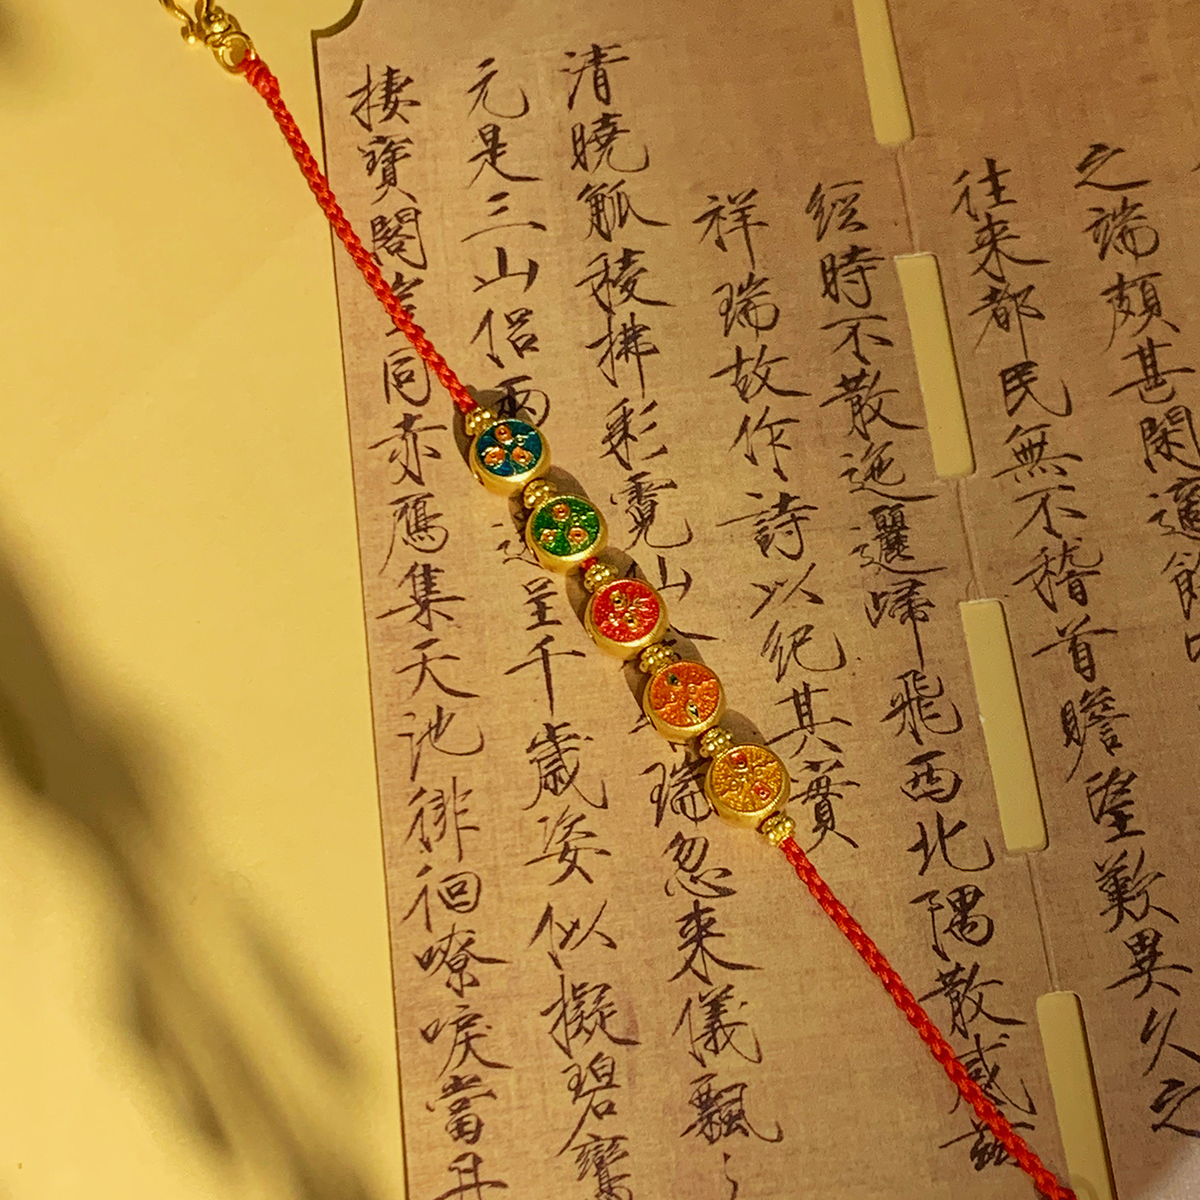 之端頗甚閑適餘
往来都民無不稽首瞻望歎異久之
經時不散迤邐歸飛西北隅散感茲
祥瑞故作詩以紀其實
清曉觚稜拂彩霓仙 瑞忽来儀飄
元是三山侣兩 呈千歲姿似擬碧鸞
棲寶閣豈同赤鴈集天池徘徊嘹唳當丹